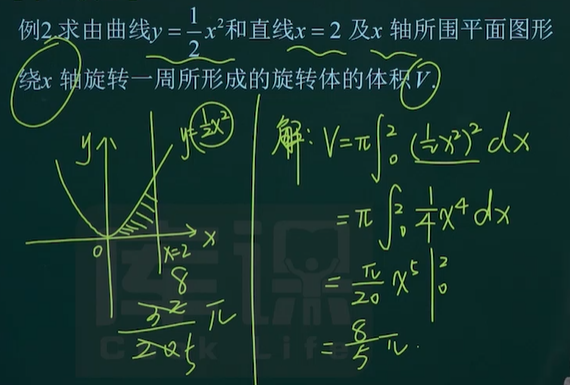 例2.求由曲线y=1/2x²和直线x=2及x轴所围平面图形
绕x轴旋转一周所形成的旋转体的体积V.
y
y=1/2x²
0
x=2
x
8
32/20 5 π
解: V=π∫₀²(1/2x²)²dx
=π∫₀²1/4x⁴dx
=π/20 x⁵|₀²
=8/5π.
库课
Cook Life